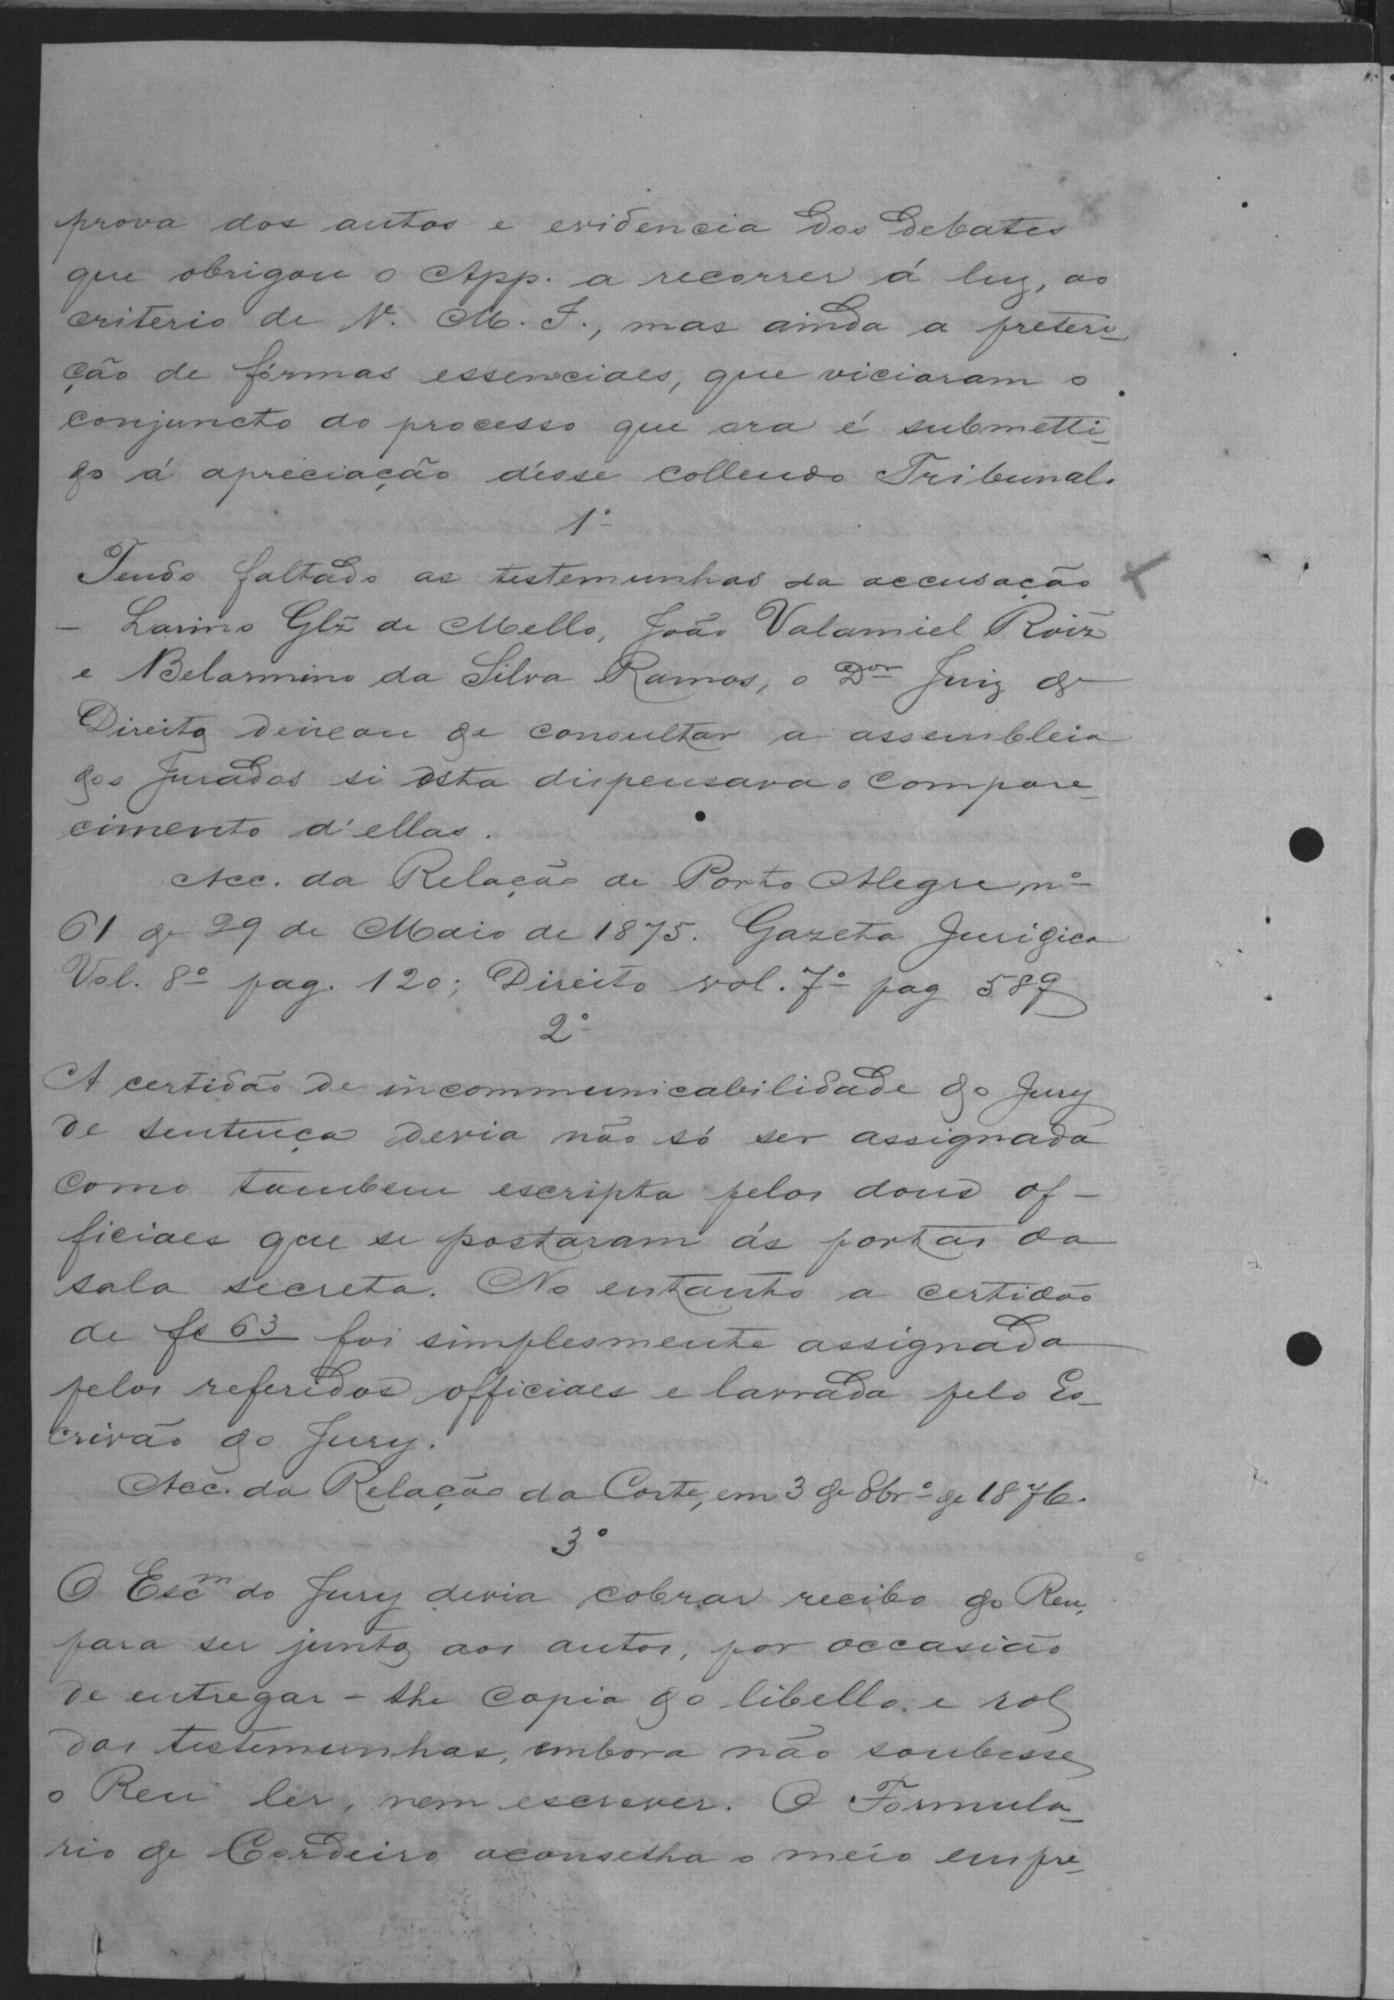 prova dos autos e evidencia dos debates
que obrigou o App. a recorrer á luz, ao
criterio de V. M. I., mas ainda a preteri-
ção de fórmas essenciaes, que viciaram o
conjuncto do processo que ora é submetti-
do á apreciação désse collendo Tribunal.
1º
Tendo faltado as testemunhas da accusação
- Larino Glz de Mello, João Valamiel Roiz
e Belarmino da Silva Ramos, o Dor Juiz de
Direito deixou de consultar a assembleia
dos Jurados si esta dispensava o compare-
cimento d'ellas.
Acc. da Relação de Porto Alegre, nº
61 de 29 de Maio de 1875. Gazeta Juridica
Vol. 8º pag. 120; Direito vol. 7º pag 589
2º
A certidão de incommunicabilidade do Jury
de sentença devia não só ser assignada
como tambem escripta pelos dous of-
ficiaes que se postaram ás portas da
sala secreta. No entanto a certidão
de fs 63 foi simplesmente assignada
pelos referidos officiaes e lavrada pelo Es-
crivão do Jury.
Acc. da Relação da Corte, em 3 de 8brº de 1876.
3º
O Escm do Jury devia cobrar recibo do Reu,
para ser junto aos autos, por occasião
de entregar-lhe copia do libello e rol
das testemunhas, embora não soubesse
o Reu ler, nem escrever. O Formula-
rio de Cordeiro aconselha o meio empre-